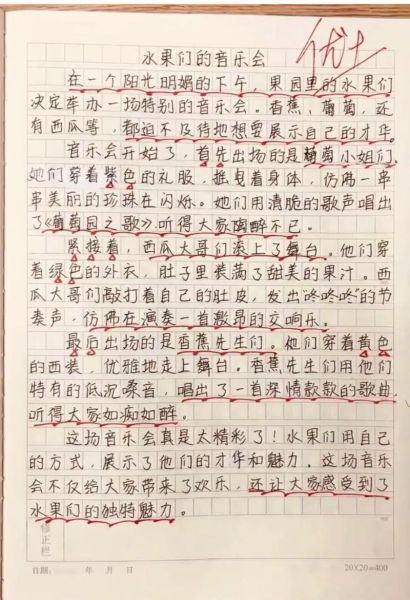 水果们的音乐会
优+
在一个阳光明媚的下午，果园里的水果们
决定举办一场特别的音乐会。香蕉、葡萄，还
有西瓜等，都迫不及待地想要展示自己的才华。
音乐会开始了，首先出场的是葡萄小姐们，
她们穿着紫色的礼服，摇曳着身体，仿佛一串
串美丽的珍珠在闪烁。她们用清脆的歌声唱出
了《葡萄园之歌》，听得大家陶醉不已。
紧接着，西瓜大哥们滚上了舞台。他们穿
着绿色的外衣，肚子里装满了甜美的果汁。西
瓜大哥们敲打着自己的肚皮，发出“咚咚咚”的节
奏声，仿佛在演奏一首激昂的交响乐。
最后出场的是香蕉先生们。他们穿着黄色
的西装，优雅地走上舞台。香蕉先生们用他们
特有的低沉嗓音，唱出了一首深情款款的歌曲，
听得大家如痴如醉。
这场音乐会真是太精彩了！水果们用自己
的方式，展示了他们的才华和魅力。这场音乐
会不仅给大家带来了欢乐，还让大家感受到了
水果们的独特魅力。
修正栏
日期： 年 月 日
20X20=400